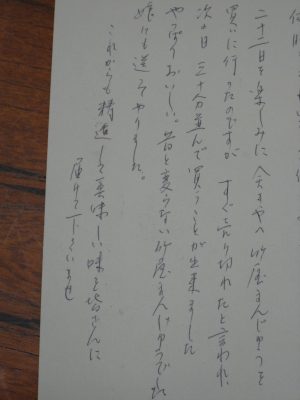 二十一日を楽しみに 久々や 竹屋まんじゅうを
買いに行ったのですが すぐ売り切れたと言われ
次の日 三十分並んで買うことが出来ました
やっぱりおいしい。昔と変らない竹屋まんじゅうでした
娘にも送ってやりました。
これからも精進して美味しい味を皆さんに
届けて下さいませ